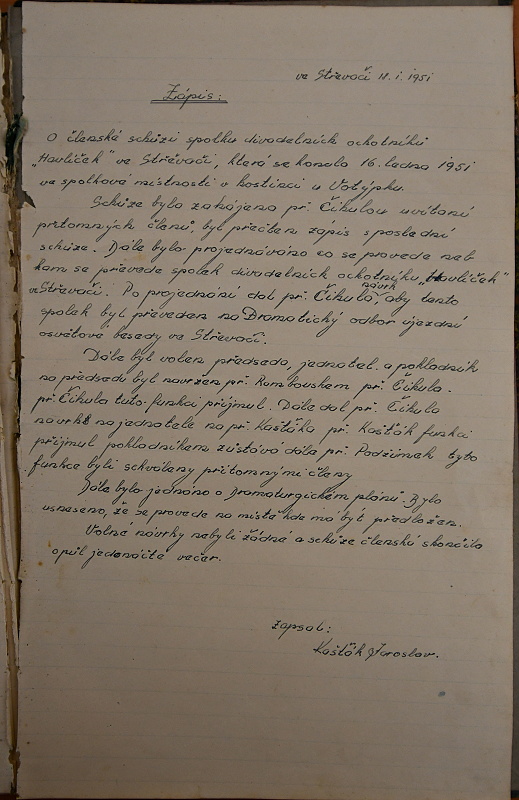 ve Střevači 18. I. 1951
Zápis:
O členské schůzi spolku divadelních ochotníků
„Havlíček" ve Střevači, která se konala 16. ledna 1951
ve spolkové místnosti v hostinci u Votýpku.
Schůze byla zahájena př. Čihulou uvítání
přítomných členů, byl přečten zápis s poslední
schůze. Dále bylo projednáváno co se provede neb
kam se převede spolek divadelních ochotníků „Havlíček"
ve Střevači. Po projednání dal př. Čihula, návrh aby tento
spolek byl převeden na Dramatický odbor újezdní
osvětové besedy ve Střevači.
Dále byl volen předseda, jednatel a pokladník
na předsedu byl navržen př. Rambouskem př. Čihula.
př. Čihula tuto funkci přijmul. Dále dal př. Čihula
návrh na jednatele na př. Kaštáka př. Kašták funkci
přijmul pokladníkem zůstává dále př. Podzimek tyto
funkce byli schváleny přítomnými členy
Dále bylo jednáno o Dramaturgickém plánu. Bylo
usneseno, že se provede na místě kde má být předložen.
Volné návrhy nebyli žádné a schůze členská skončila
o půl jedenácté večer.
zapsal:
Kašták Jaroslav.